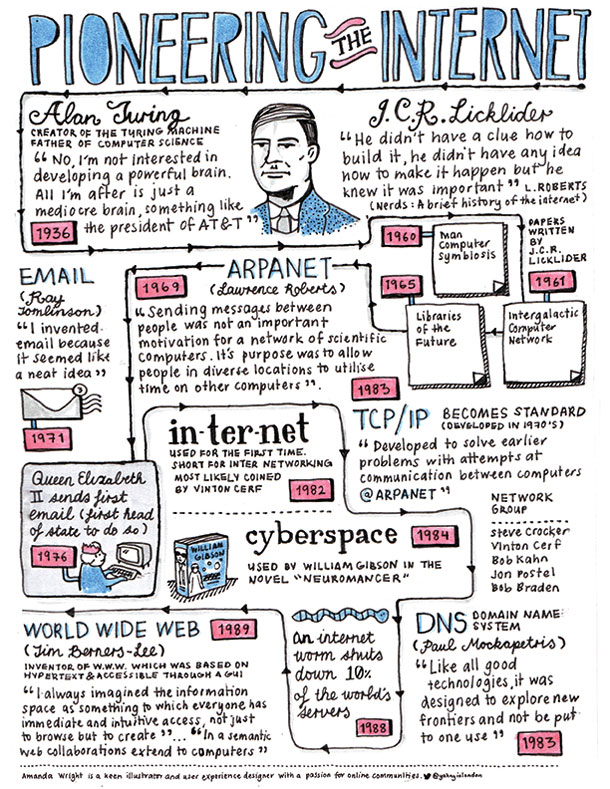 PIONEERING THE INTERNET
Alan Turing
CREATOR OF THE TURING MACHINE
FATHER OF COMPUTER SCIENCE
"No, I'm not interested in
developing a powerful brain.
All I'm after is just a
mediocre brain, something like
the president of AT&T"
1936
J.C.R. Licklider
"He didn't have a clue how to
build it, he didn't have any idea
how to make it happen but he
knew it was important" L. ROBERTS
(Nerds: A brief history of the internet)
1960
Man
Computer
Symbiosis
PAPERS
WRITTEN
BY
J.C.R.
LICKLIDER
1965
Libraries
of the
Future
1961
Intergalactic
Computer
Network
EMAIL
(Ray
Tomlinson)
"I invented
email because
it seemed like
a neat idea"
1971
1969
ARPANET
(Lawrence Roberts)
"Sending messages between
people was not an important
motivation for a network of scientific
computers. It's purpose was to allow
people in diverse locations to utilise
time on other computers".
1983
TCP/IP BECOMES STANDARD
(DEVELOPED IN 1970'S)
"Developed to solve earlier
problems with attempts at
communication between computers
@ARPANET"
NETWORK
GROUP
Steve Crocker
Vinton Cerf
Bob Kahn
Jon Postel
Bob Braden
in·ter·net
USED FOR THE FIRST TIME.
SHORT FOR INTER NETWORKING
MOST LIKELY COINED
BY VINTON CERF
1982
Queen Elizabeth
II sends first
email (first head
of state to do so)
1976
WILLIAM
GIBSON
cyberspace 1984
USED BY WILLIAM GIBSON IN THE
NOVEL "NEUROMANCER"
WORLD WIDE WEB 1989
(Tim Berners-Lee)
INVENTOR OF W.W.W. WHICH WAS BASED ON
HYPERTEXT & ACCESSIBLE THROUGH A GUI
"I always imagined the information
space as something to which everyone has
immediate and intuitive access, not just
to browse but to create"... "In a semantic
web collaborations extend to computers"
An internet
worm shuts
down 10%
of the world's
servers
1988
DNS DOMAIN NAME
SYSTEM
(Paul Mockapetris)
"Like all good
technologies, it was
designed to explore new
frontiers and not be put
to one use"
1983
Amanda Wright is a keen illustrator and user experience designer with a passion for online communities.